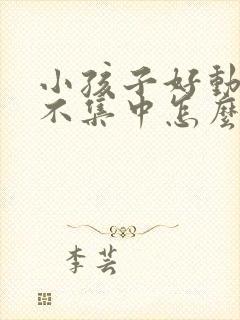 小孩子好動
不集中怎麼
李芸